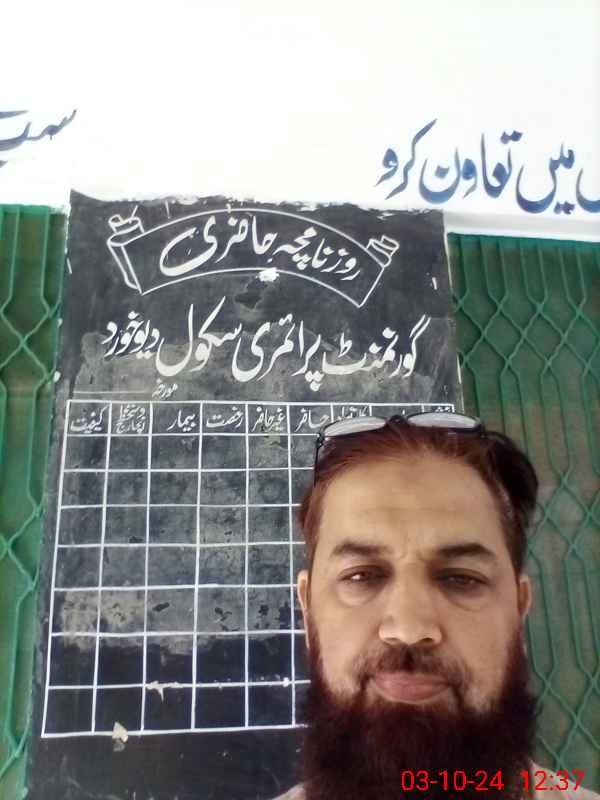 میں تعاون کرو
روزنامچہ حاضری
گورنمنٹ پرائمری سکول دیوخورد
مورخہ
حاضر غیرحاضر رخصت بیمار دستخط انچارج کیفیت
03-10-24 12:37